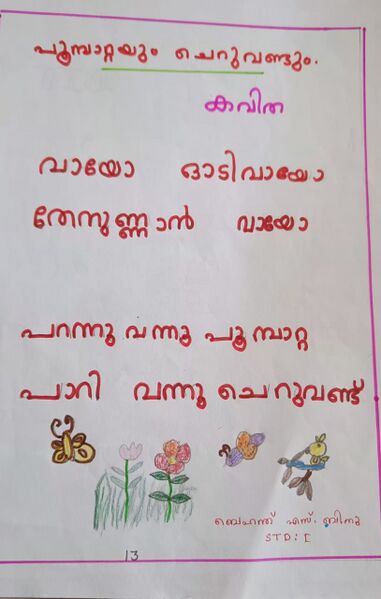 പൂമ്പാറ്റയും ചെറുവണ്ടും.
കവിത
വായോ ഓടിവായോ
തേനുണ്ണാൻ വായോ
പറന്നു വന്നു പൂമ്പാറ്റ
പാറി വന്നൂ ചെറുവണ്ട്
എസ്. ബിനു
STD: I
13